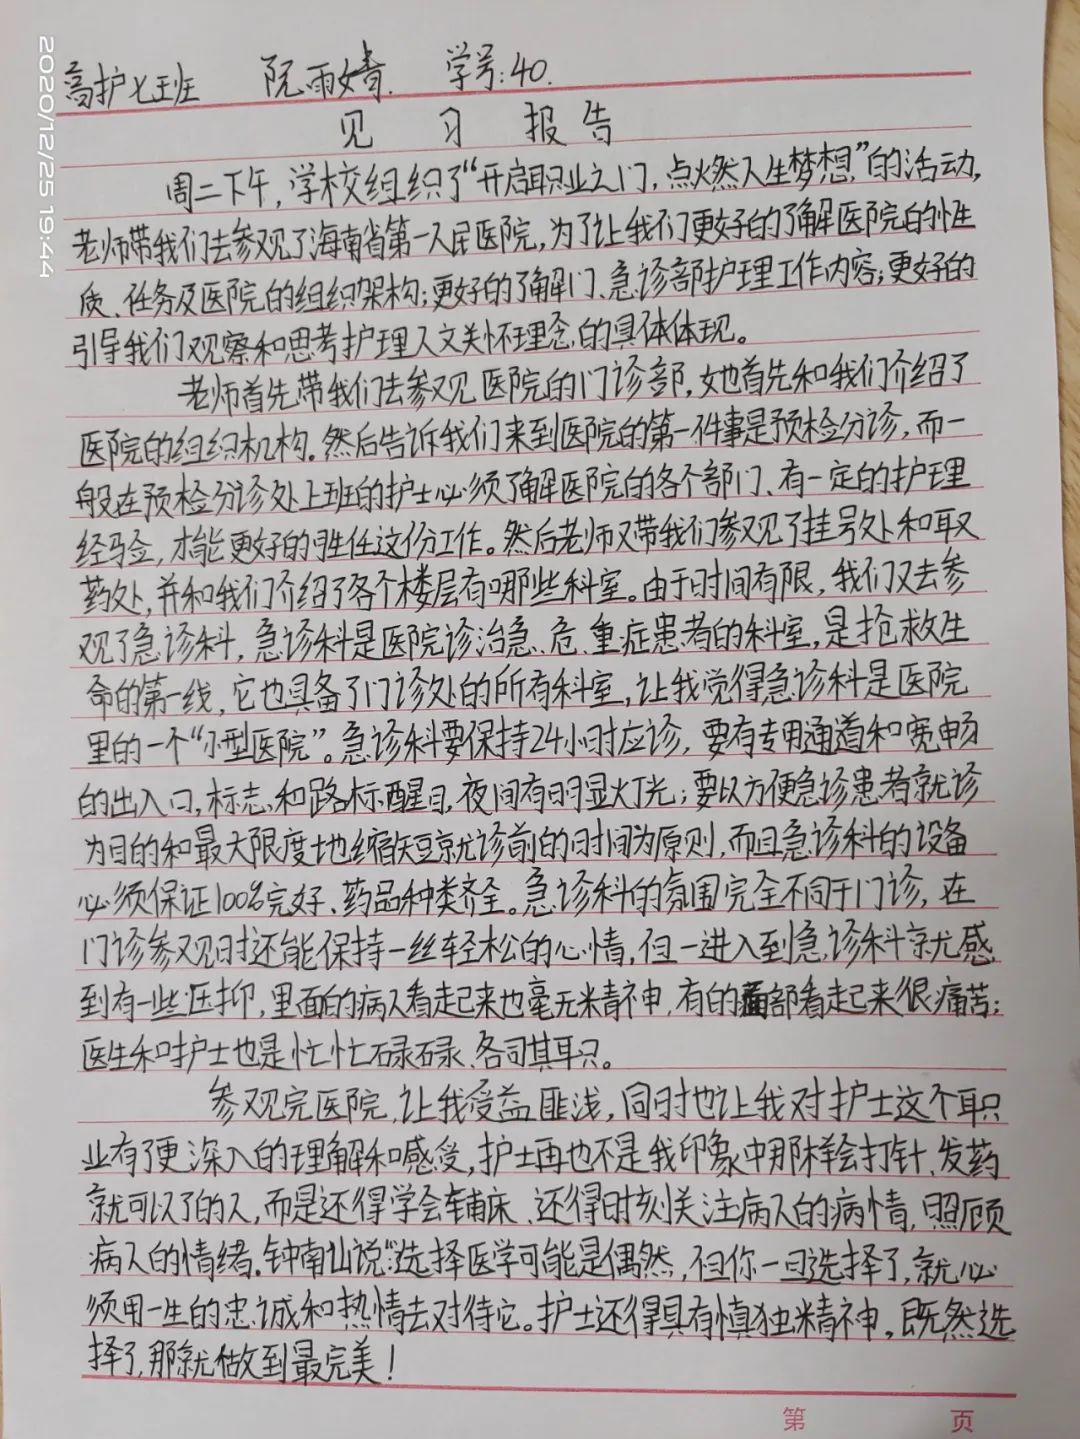 2020/12/25 19:44
高护七班 阮雨婧. 学号:40.
见习报告
周二下午,学校组织了“开启职业之门,点燃人生梦想”的活动,
老师带我们去参观了海南省第一人民医院,为了让我们更好的了解医院的性
质、任务及医院的组织架构;更好的了解门、急诊部护理工作内容;更好的
引导我们观察和思考护理人文关怀理念的具体体现。
老师首先带我们去参观医院的门诊部,她首先和我们介绍了
医院的组织机构。然后告诉我们来到医院的第一件事是预检分诊,而一
般在预检分诊处上班的护士必须了解医院的各个部门、有一定的护理
经验,才能更好的胜任这份工作。然后老师又带我们参观了挂号处和取
药处,并和我们介绍了各个楼层有哪些科室。由于时间有限,我们又去参
观了急诊科,急诊科是医院诊治急、危、重症患者的科室,是抢救生
命的第一线,它也具备了门诊处的所有科室,让我觉得急诊科是医院
里的一个“小型医院”。急诊科要保持24小时应诊,要有专用通道和宽畅
的出入口,标志和路标醒目,夜间有明显灯光;要以方便急诊患者就诊
为目的和最大限度地缩短就诊前的时间为原则,而且急诊科的设备
必须保证100%完好、药品种类齐全。急诊科的氛围完全不同于门诊,在
门诊参观时还能保持一丝轻松的心情,但一进入到急诊科就感
到有一些压抑,里面的病人看起来也毫无精神,有的面部看起来很痛苦;
医生和护士也是忙忙碌碌、各司其职。
参观完医院,让我受益匪浅,同时也让我对护士这个职
业有了更深入的理解和感受,护士再也不是我印象中那样会打针、发药
就可以了的人,而是还得学会铺床、还得时刻关注病人的病情,照顾
病人的情绪。钟南山说:“选择医学可能是偶然,但你一旦选择了,就必
须用一生的忠诚和热情去对待它。护士还得具有慎独精神,既然选
择了,那就做到最完美!
第 页